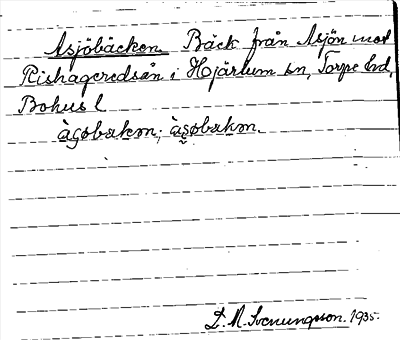 Asjöbäcken Bäck från Asjön mot
Rishageredsån i Hjärtum sn, Torpe hd,
Bohus l
àsøbækən; àsøbækən.
D. M. Svenungsson. 1935.